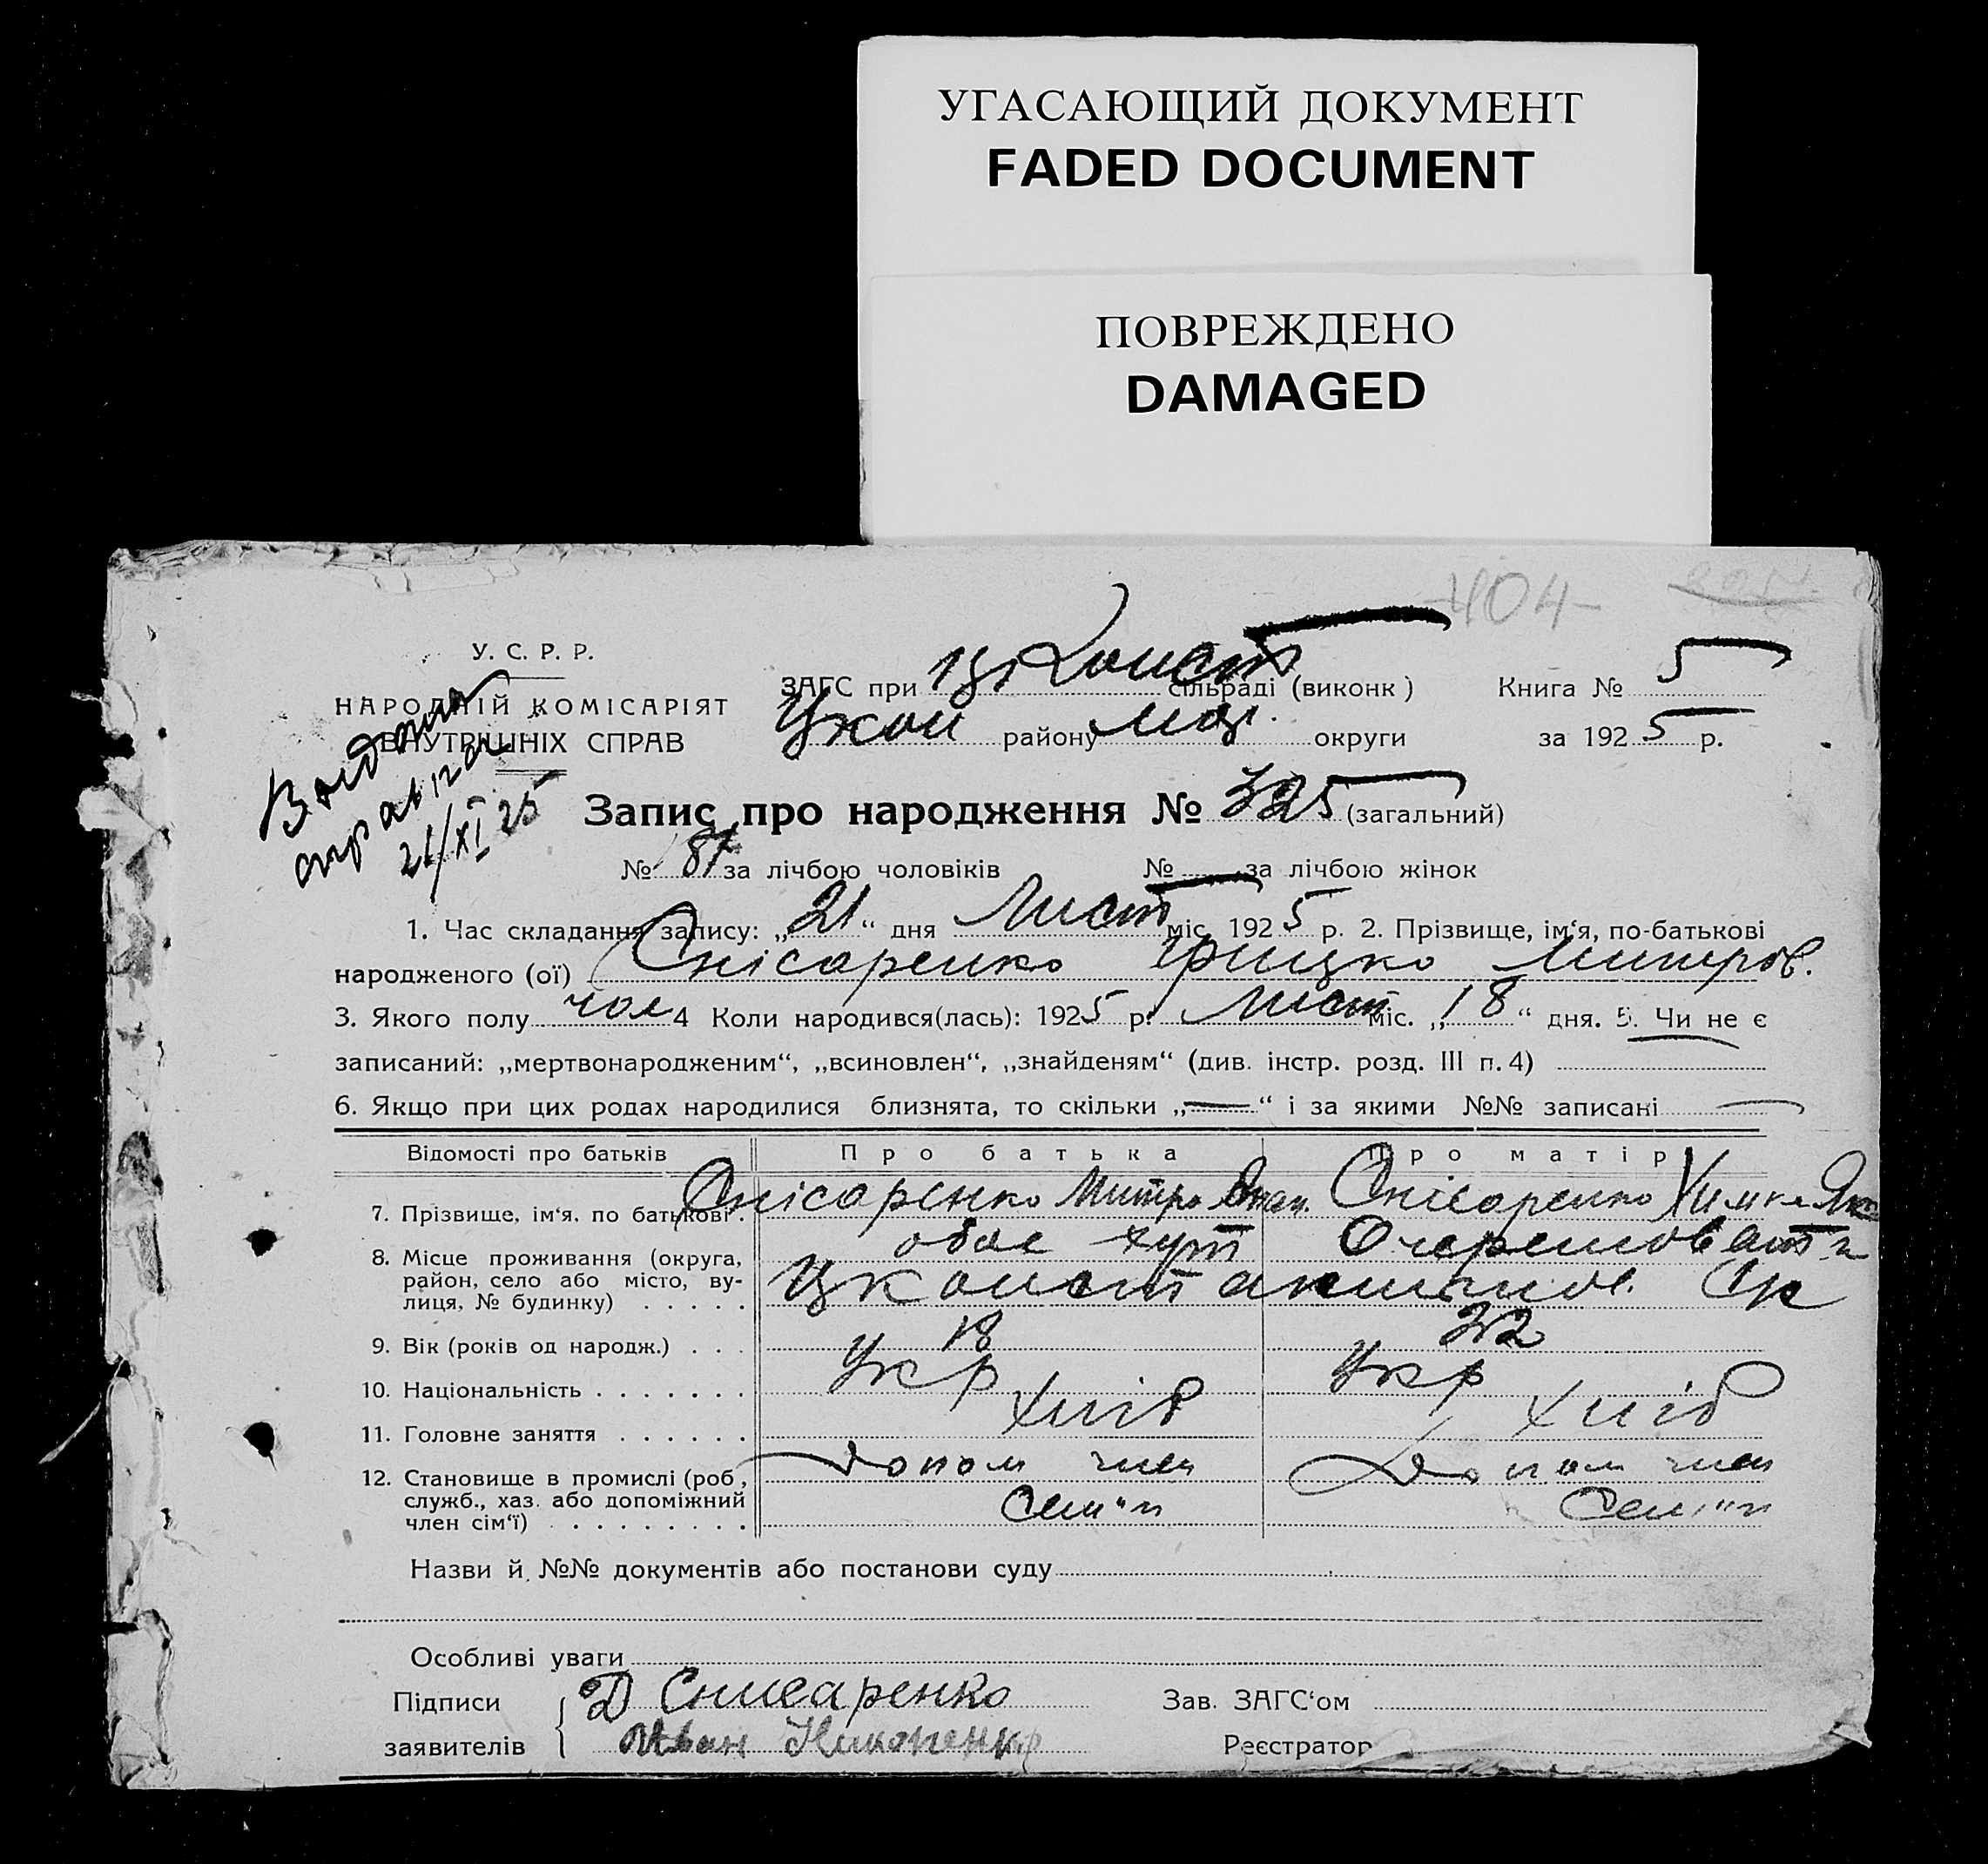 УГАСАЮЩИЙ ДОКУМЕНТ
FADED DOCUMENT
ПОВРЕЖДЕНО
DAMAGED
404
У. С. Р. Р.
НАРОДНІЙ КОМІСАРІЯТ
ВНУТРІШНІХ СПРАВ
21/XI 25
ЗАГС при сільраді (виконк)
району округи
Книга № 5
за 1925 р.
Запис про народження № 325 (загальний)
№ 187 за лічбою чоловіків № — за лічбою жінок
1. Час складання запису: „21“ дня Лист міс. 1925 р. 2. Прізвище, ім‘я, по-батькові
народженого (ої) Снісаренко Грицко Митров.
3. Якого полу чол 4 Коли народився(лась): 1925 р. Лист міс. „18“ дня. 5. Чи не є
записаний: „мертвонародженим“, „всиновлен“, „знайденям“ (див. інстр. розд. III п. 4)
6. Якщо при цих родах народилися близнята, то скільки „—“ і за якими №№ записані —
Відомості про батьків Про батька Про матір
7. Прізвище, ім‘я, по батькові. Снісаренко Митро Снісаренко Химка
8. Місце проживання (округа, район, село або місто, вулиця, № будинку) обоє хут
Цконстантинов.
9. Вік (років од народж.) . . . 18 32
10. Національність . . . . . . . Укр Укр
11. Головне заняття . . . . . . Хліб Хліб
12. Становище в промислі (роб., Допом член Допом член
служб., хаз. або допоміжний Сем"ї Сем"ї
член сім‘ї) . . . . . . . .
Назви й №№ документів або постанови суду
Особливі уваги
Підписи Д Снисаренко Зав. ЗАГС‘ом
заявителів Іван Реєстратор